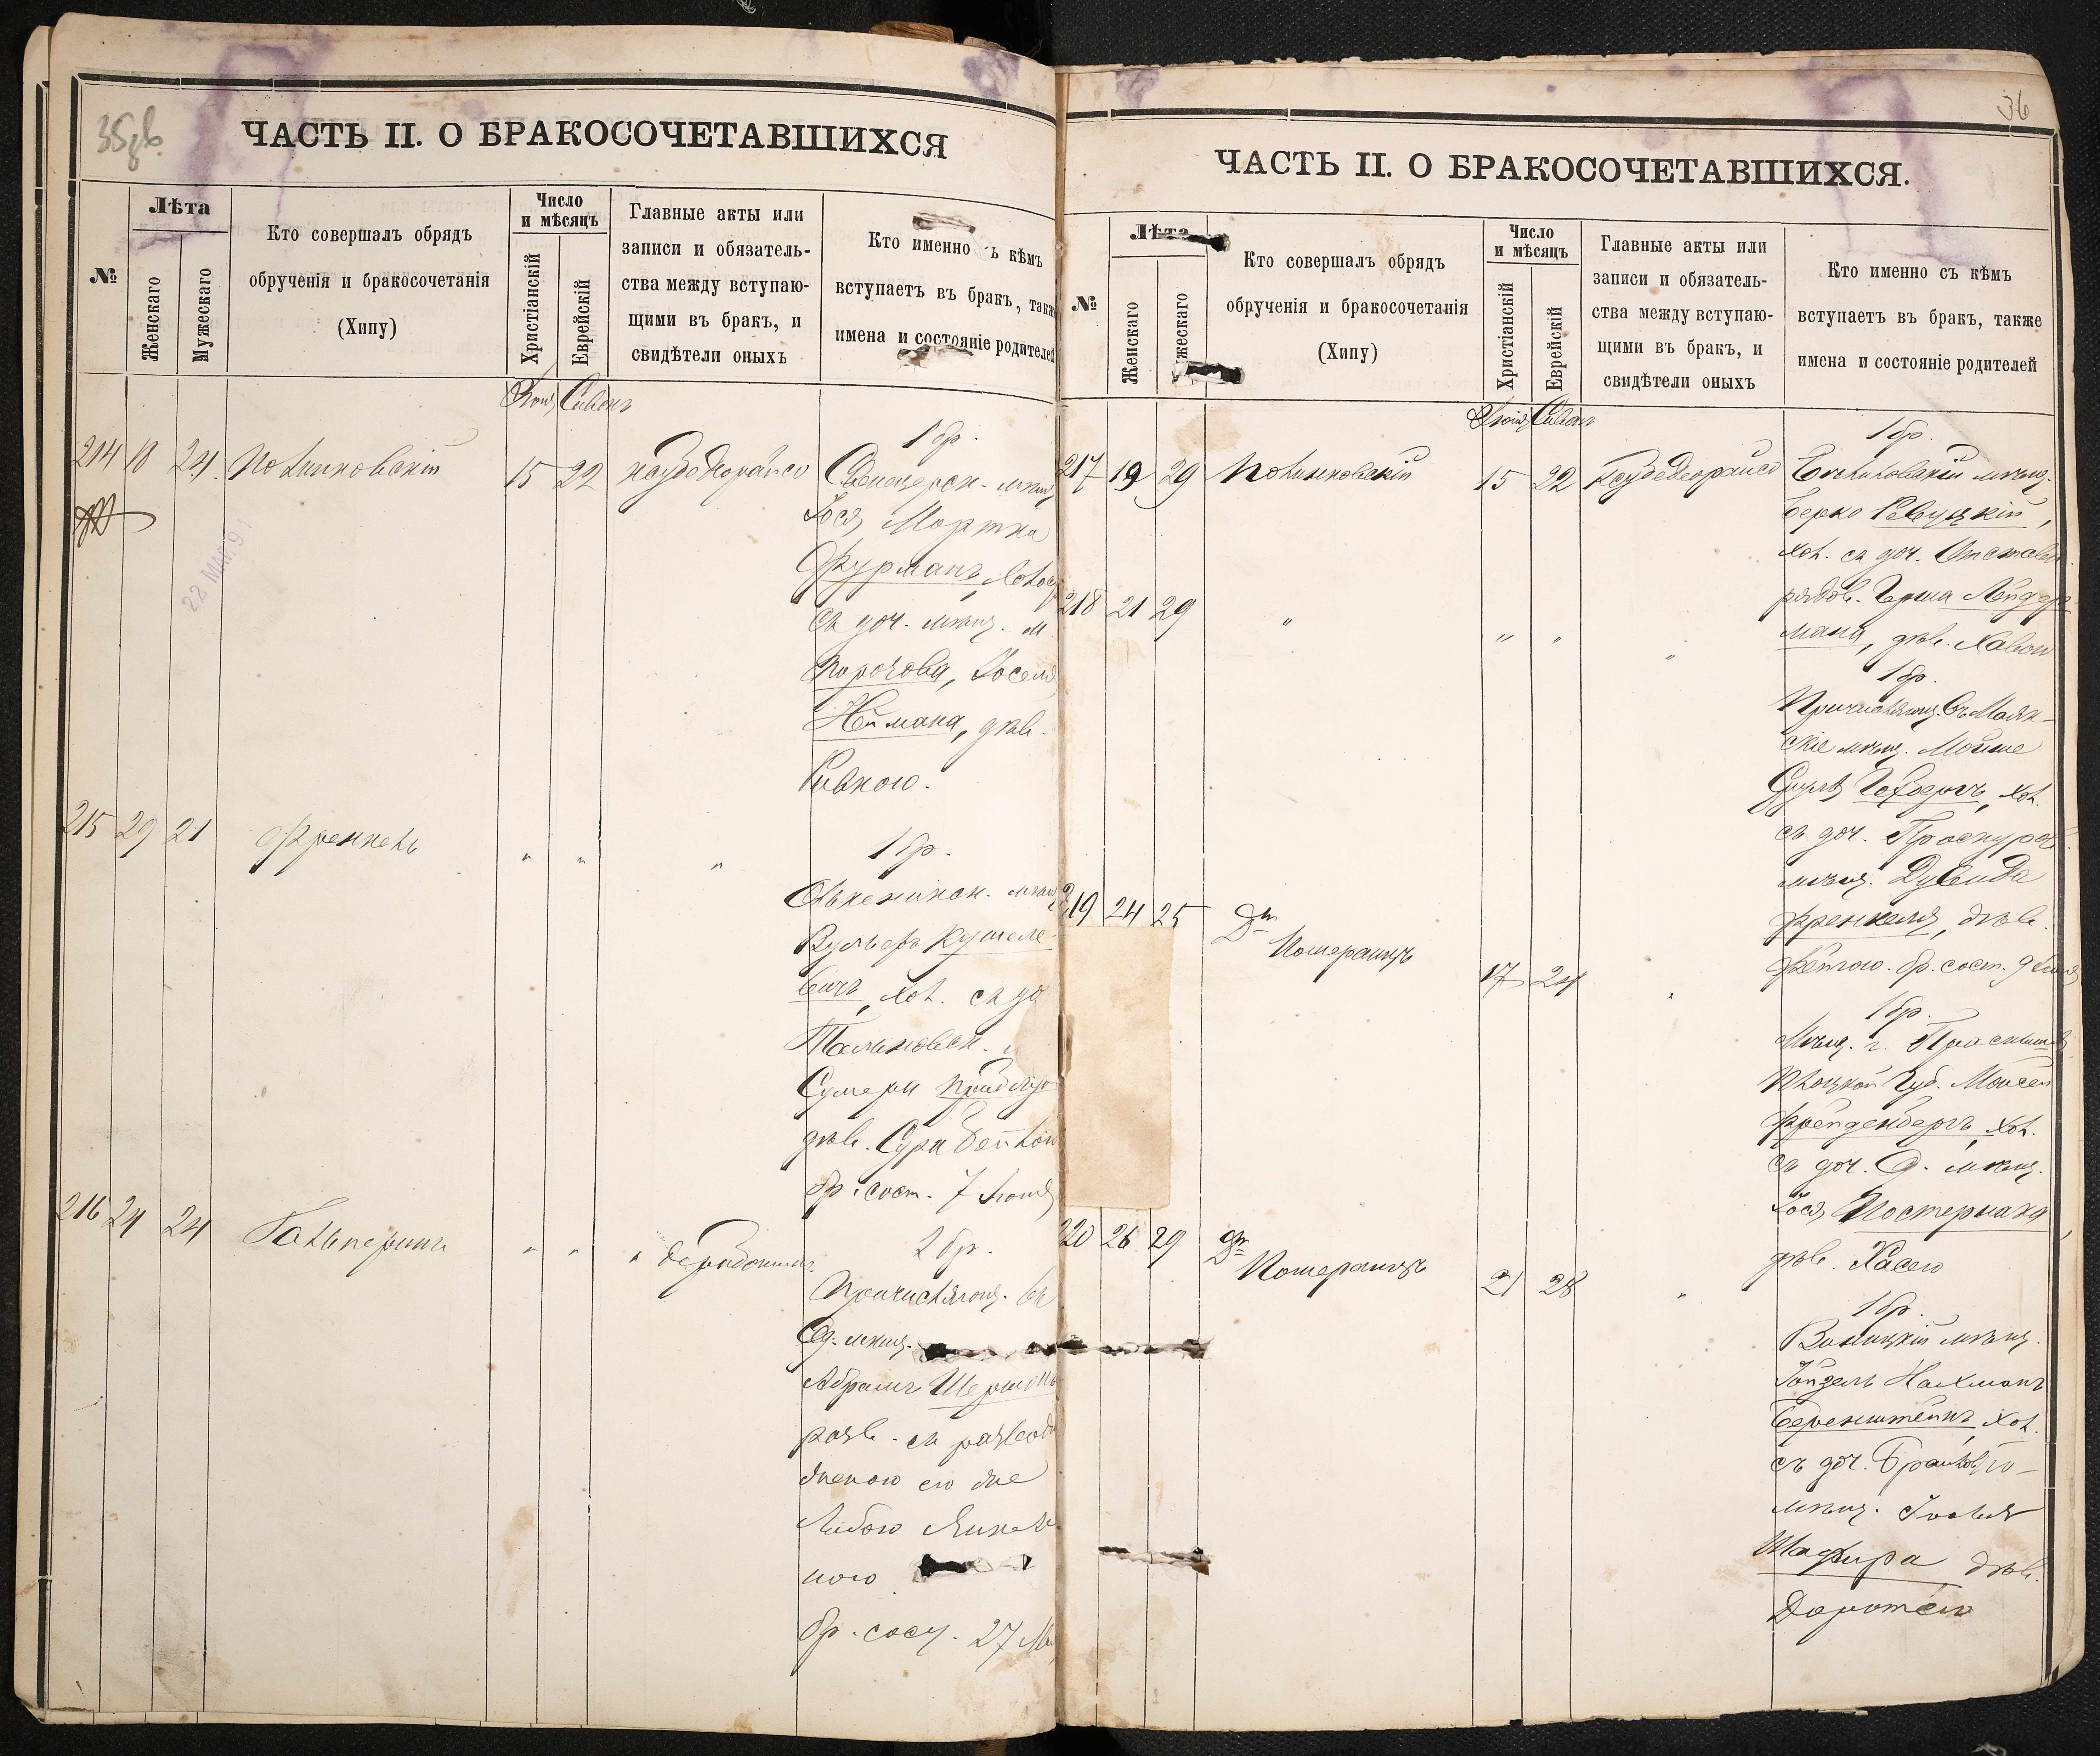 35об.
ЧАСТЬ II. О БРАКОСОЧЕТАВШИХСЯ
№
Лѣта
Женскаго
Мужескаго
Кто совершалъ обрядъ
обрученія и бракосочетанія
(Хипу)
Число
и мѣсяцъ
Христіанскій
Еврейскій
Главные акты или
записи и обязатель-
ства между вступаю-
щими въ бракъ, и
свидѣтели оныхъ
Кто именно съ кѣмъ
вступаетъ въ бракъ, также
имена и состояніе родителей
Іюня Сиванъ
214 18 24 Полинковскій 15 22
1 бр.
мѣщ.
Іося Мортка
Фурманъ, холос
съ доч. мѣщ. м.
Іоселя
Неймана, дѣв.
Ривкою.
22 MAI 9
215 29 21 Френкель " " "
1 бр.
Олькеникск. мѣщ
Вульфъ Кушеле-
вичъ, хол. съ до
Тальновск.
Сумери
дѣв. Сура Бейлею
бр. сост. 7 Іюня
216 24 24 Гальперинъ " " "
2 бр.
Причисляющ. въ
Од. мѣщ.
Абрамъ
разв. съ разведе
дненою его же
Любою
ною
бр. сост. 27 Ма
36
ЧАСТЬ II. О БРАКОСОЧЕТАВШИХСЯ.
№
Лѣта
Женскаго
жескаго
Кто совершалъ обрядъ
обрученія и бракосочетанія
(Хипу)
Число
и мѣсяцъ
Христіанскій
Еврейскій
Главные акты или
записи и обязатель-
ства между вступаю-
щими въ бракъ, и
свидѣтели оныхъ
Кто именно съ кѣмъ
вступаетъ въ бракъ, также
имена и состояніе родителей
Іюня Сиванъ
217 19 29 Полинковскій 15 22
1 бр.
мѣщ.
Берко Ревуцкій,
хол. съ доч. Отставн.
рядов. Герша Лейдер
мана, дѣв. Хавою
218 21 29 " " " "
1 бр.
Причисляющ. въ Маяк-
скіе мѣщ. Мойше
хол.
съ доч. Проскуров.
мѣщ. Дувида
Френкеля, дѣв.
бр. сост. 9 Іюня
219 24 25 Др Померанцъ 17 24 "
1 бр.
Мѣщ. г. Праснышъ
Плоцкой Губ. Моисей
Фрейденбергъ, хол.
съ доч. О. мѣщ.
Іося Постернака,
дѣв. Хасею
220 26 29 Др Померанцъ 21 28 "
1 бр.
Винницкій мѣщ.
Іойдель Нахманъ
Беренштейнъ, хол.
съ доч.
мѣщ. Іоеля
Шафира, дѣв.
Доротею